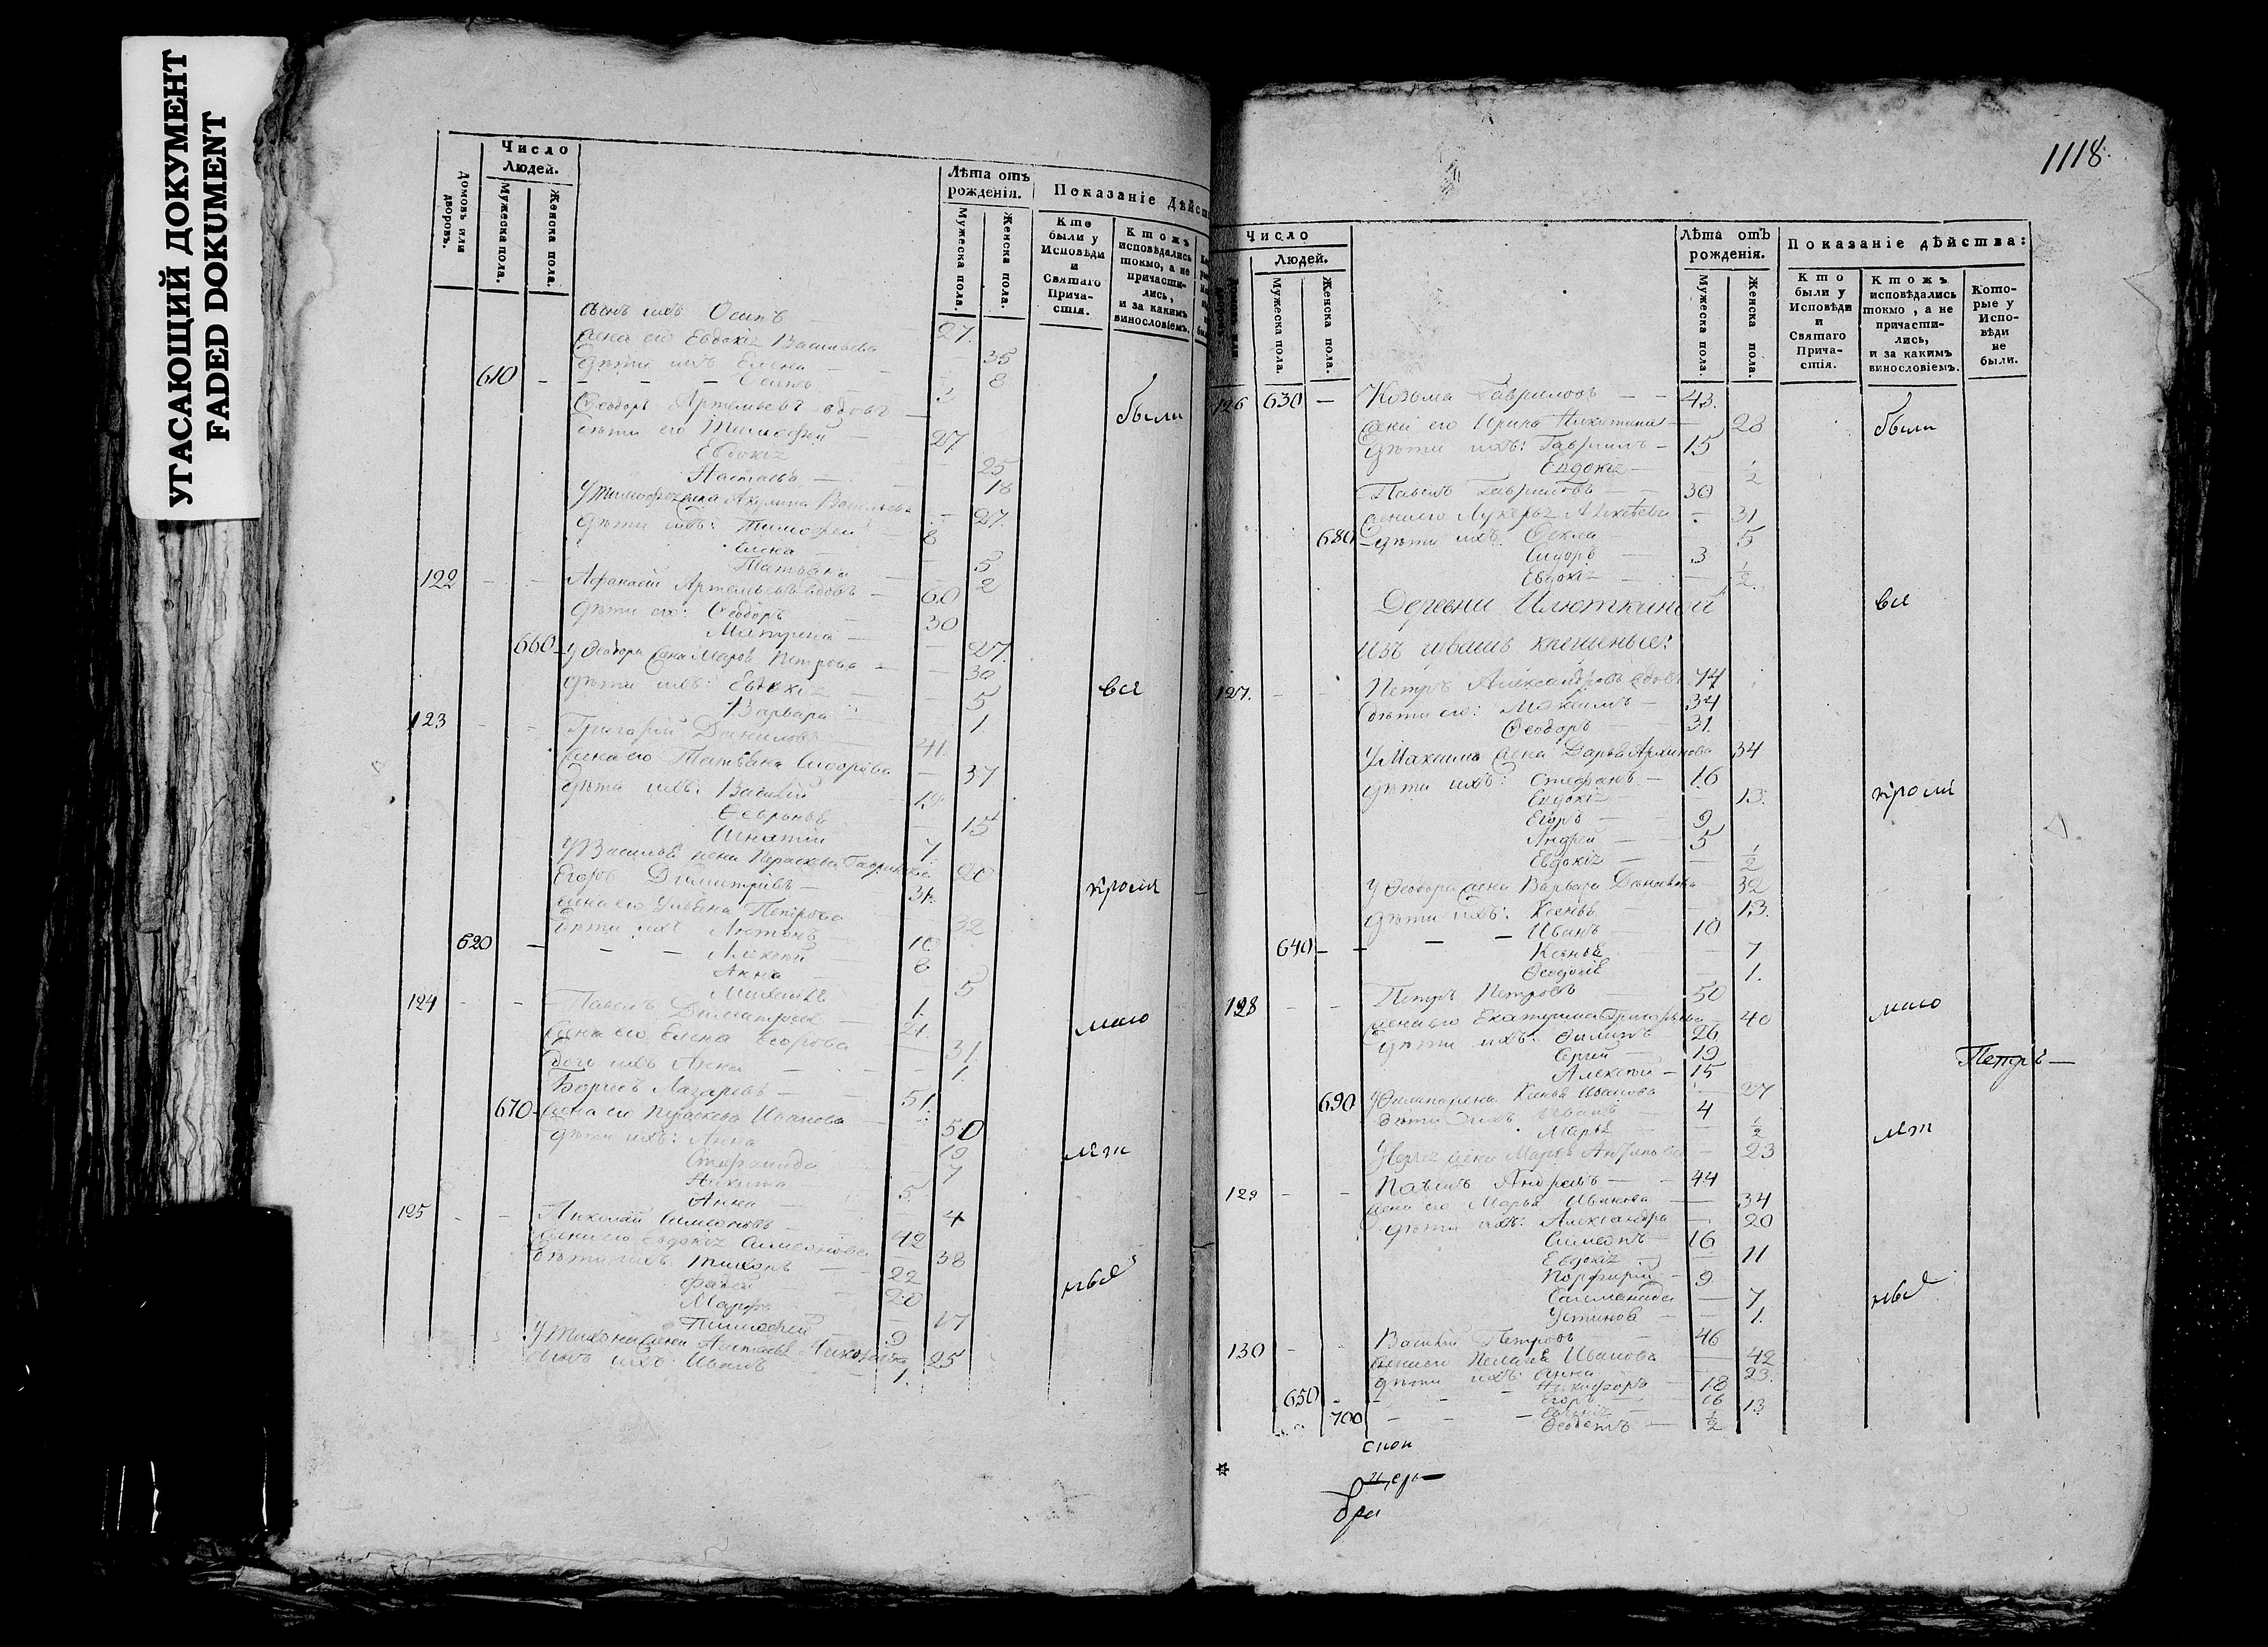 УГАСАЮЩИЙ ДОКУМЕНТ
FADED DOKUMENT
Число
Людей.
Домовъ или дворовъ.
Мужеска пола.
Женска пола.
Лѣта отъ рожденія.
Мужеска пола.
Женска пола.
Показаніе Дѣйст
Кто были у Исповѣди и Святаго Причастія.
Ктожъ исповѣдались токмо, а не причастились, и за какимъ винословіемъ.
сынъ ихъ Осипъ 27.
жена его Евдокіѧ Васильева 35
Дѣти ихъ Елена 8
610 Осипъ 3
Ѳеодоръ Артемьевъ вдовъ
были
дѣти его Тимофей 27
Евдокіѧ 25
Настасья 18
У Тимофеѧ жена Акулина Васильева 27.
дѣти ихъ: Тимофей 8
Елена 5
Татьяна 2
122 Афанасій Артемьевъ вдовъ 60
дѣти его: Ѳеодоръ 30
Матрена 27.
660 У Ѳеодора жена Марѳа Петрова 30
дѣти ихъ: Евдокіѧ 5
всѣ
Варвара 1.
123 Григорій Даниловъ 41.
жена его Татьяна Сидорова 37
дѣти ихъ: Василій 19
Февронья 15
Игнатій 7.
У Василья жена Прасковья Гаврилова 20
Егоръ Димитріевъ 34.
кромѣ
жена его Ульяна Петрова 32
Дѣти ихъ Антонъ 10
620 Алексѣй 8
Анна 5
Михаилъ 1.
124 Павелъ Димитріевъ 21.
мало
жена его Елена Егорова 31.
дочь ихъ Анна 1.
Борисъ Лазаревъ 51.
670 жена его Прасковья Иванова 50
дѣти ихъ: Анна 19
лѣт
Стефанида 7
Никита 5
Анна 4
125 Николай Симеоновъ 42
жена его Евдокіѧ Симеонова 38
дѣти ихъ: Тихонъ 22
Фадей 20
Марѳа 17
Тимофей 9
У Тихона жена Настасья Николаева 25
сынъ ихъ Иванъ 1.
1118.
Число
Людей.
Мужеска пола.
Женска пола.
Лѣта отъ рожденія.
Мужеска пола.
Женска пола.
Показаніе дѣйства:
Кто были у Исповѣди и Святаго Причастія.
Ктожъ исповѣдались токмо, а не причастились, и за какимъ винословіемъ.
Которые у Исповѣди не были.
126 630 Козома Гавриловъ 43.
жена его Ирина Никитина 28
были
дѣти ихъ: Гавриилъ 15
Евдокіѧ ½
Павелъ Гавриловъ 30
жена его Лукерья Алексѣева 31
680 дѣти ихъ: Ѳекла 5
Сидоръ 3
Евдокіѧ ½
Деревни Илюткиной
всѣ
изъ чувашъ крещеные:
127. Петръ Александровъ вдовъ 74
дѣти его: Максимъ 34
Ѳеодоръ 31.
У Максима жена Дарья Архипова 34
дѣти ихъ: Стефанъ 16
Евдокіѧ 13.
кромѣ
Егоръ 9
Андрей 5
Евдокіѧ ½
У Ѳеодора жена Варвара 32
дѣти ихъ: Ксенья 13.
640 Иванъ 10
Ксенья 7
Ѳеодосія 1.
128 Петръ Петровъ 50
мало
жена его Екатерина Григорьева 40
дѣти ихъ: Филипъ 26
Сергій 19
Петръ
Алексѣй 15
690 У Филипа жена Ксенья Иванова 27
дѣти ихъ Иванъ 4
Марья ½
лѣт
У Сергеѧ жена Марья 23
129 Павелъ Андреевъ 44
жена его Марья Иванова 34
дѣти ихъ: Александра 20
Симеонъ 16
Евдокіѧ 11
Порфирій 9
Саломанида 7
Устинья 1.
130 Василій Петровъ 46
жена его Пелагея Иванова 42
дѣти ихъ: Анна 23.
650 Никифоръ 18
Егоръ 16
700 Евдокіѧ 13
Ѳеодотъ ½